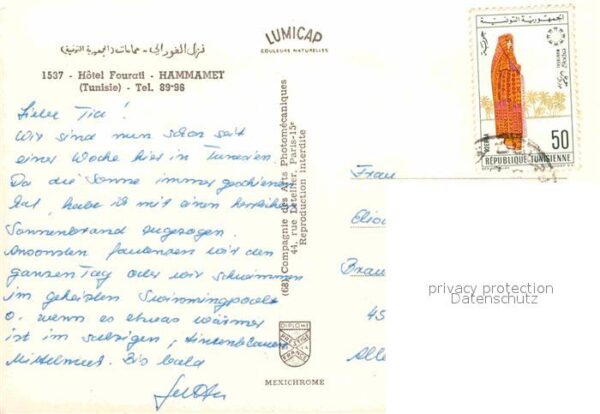 نزل الفوراتي - حمامات (الجمهورية التونسية)
1537 - Hôtel Fourati - HAMMAMET
(Tunisie) - Tel. 89-98
Liebe Tia!
Wir sind nun schon seit
einer Woche hier in Tunesien.
Da die Sonne immer geschienen
hat, habe ich mir einen herrlichen
Sonnenbrand zugezogen.
Ansonsten faulenzen wir den
ganzen Tag oder wir schwimmen
im geheizten Swimmingpool
o. wenn es etwas wärmer
ist im salzigen, tintenblauen
Mittelmeer. Bis bald
LUMICAP
COULEURS NATURELLES
(68) Compagnie des Arts Photomécaniques
44, rue Letellier, Paris-15e
Reproduction interdite
DIPLOME
PRESTIGE
FRANCE
MEXICHROME
الجمهورية التونسية
50
REPUBLIQUE TUNISIENNE
Frau
Brau
45
privacy protection
Datenschutz